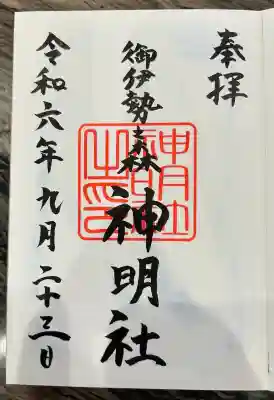 奉拝
御伊勢森
神明社
神明社之印
令和六年九月二十三日